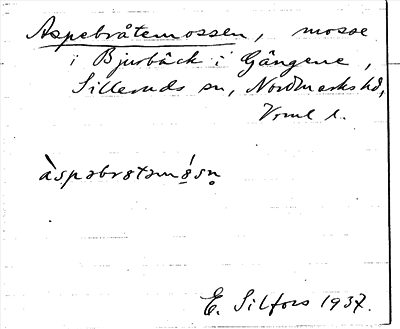 Aspebråtemossen, mosse
i Bjurbäck i Gängene,
Silleruds sn, Nordmarks hd,
Vrml l.
àspəbrətəmósn̥
E. Silfors 1937.